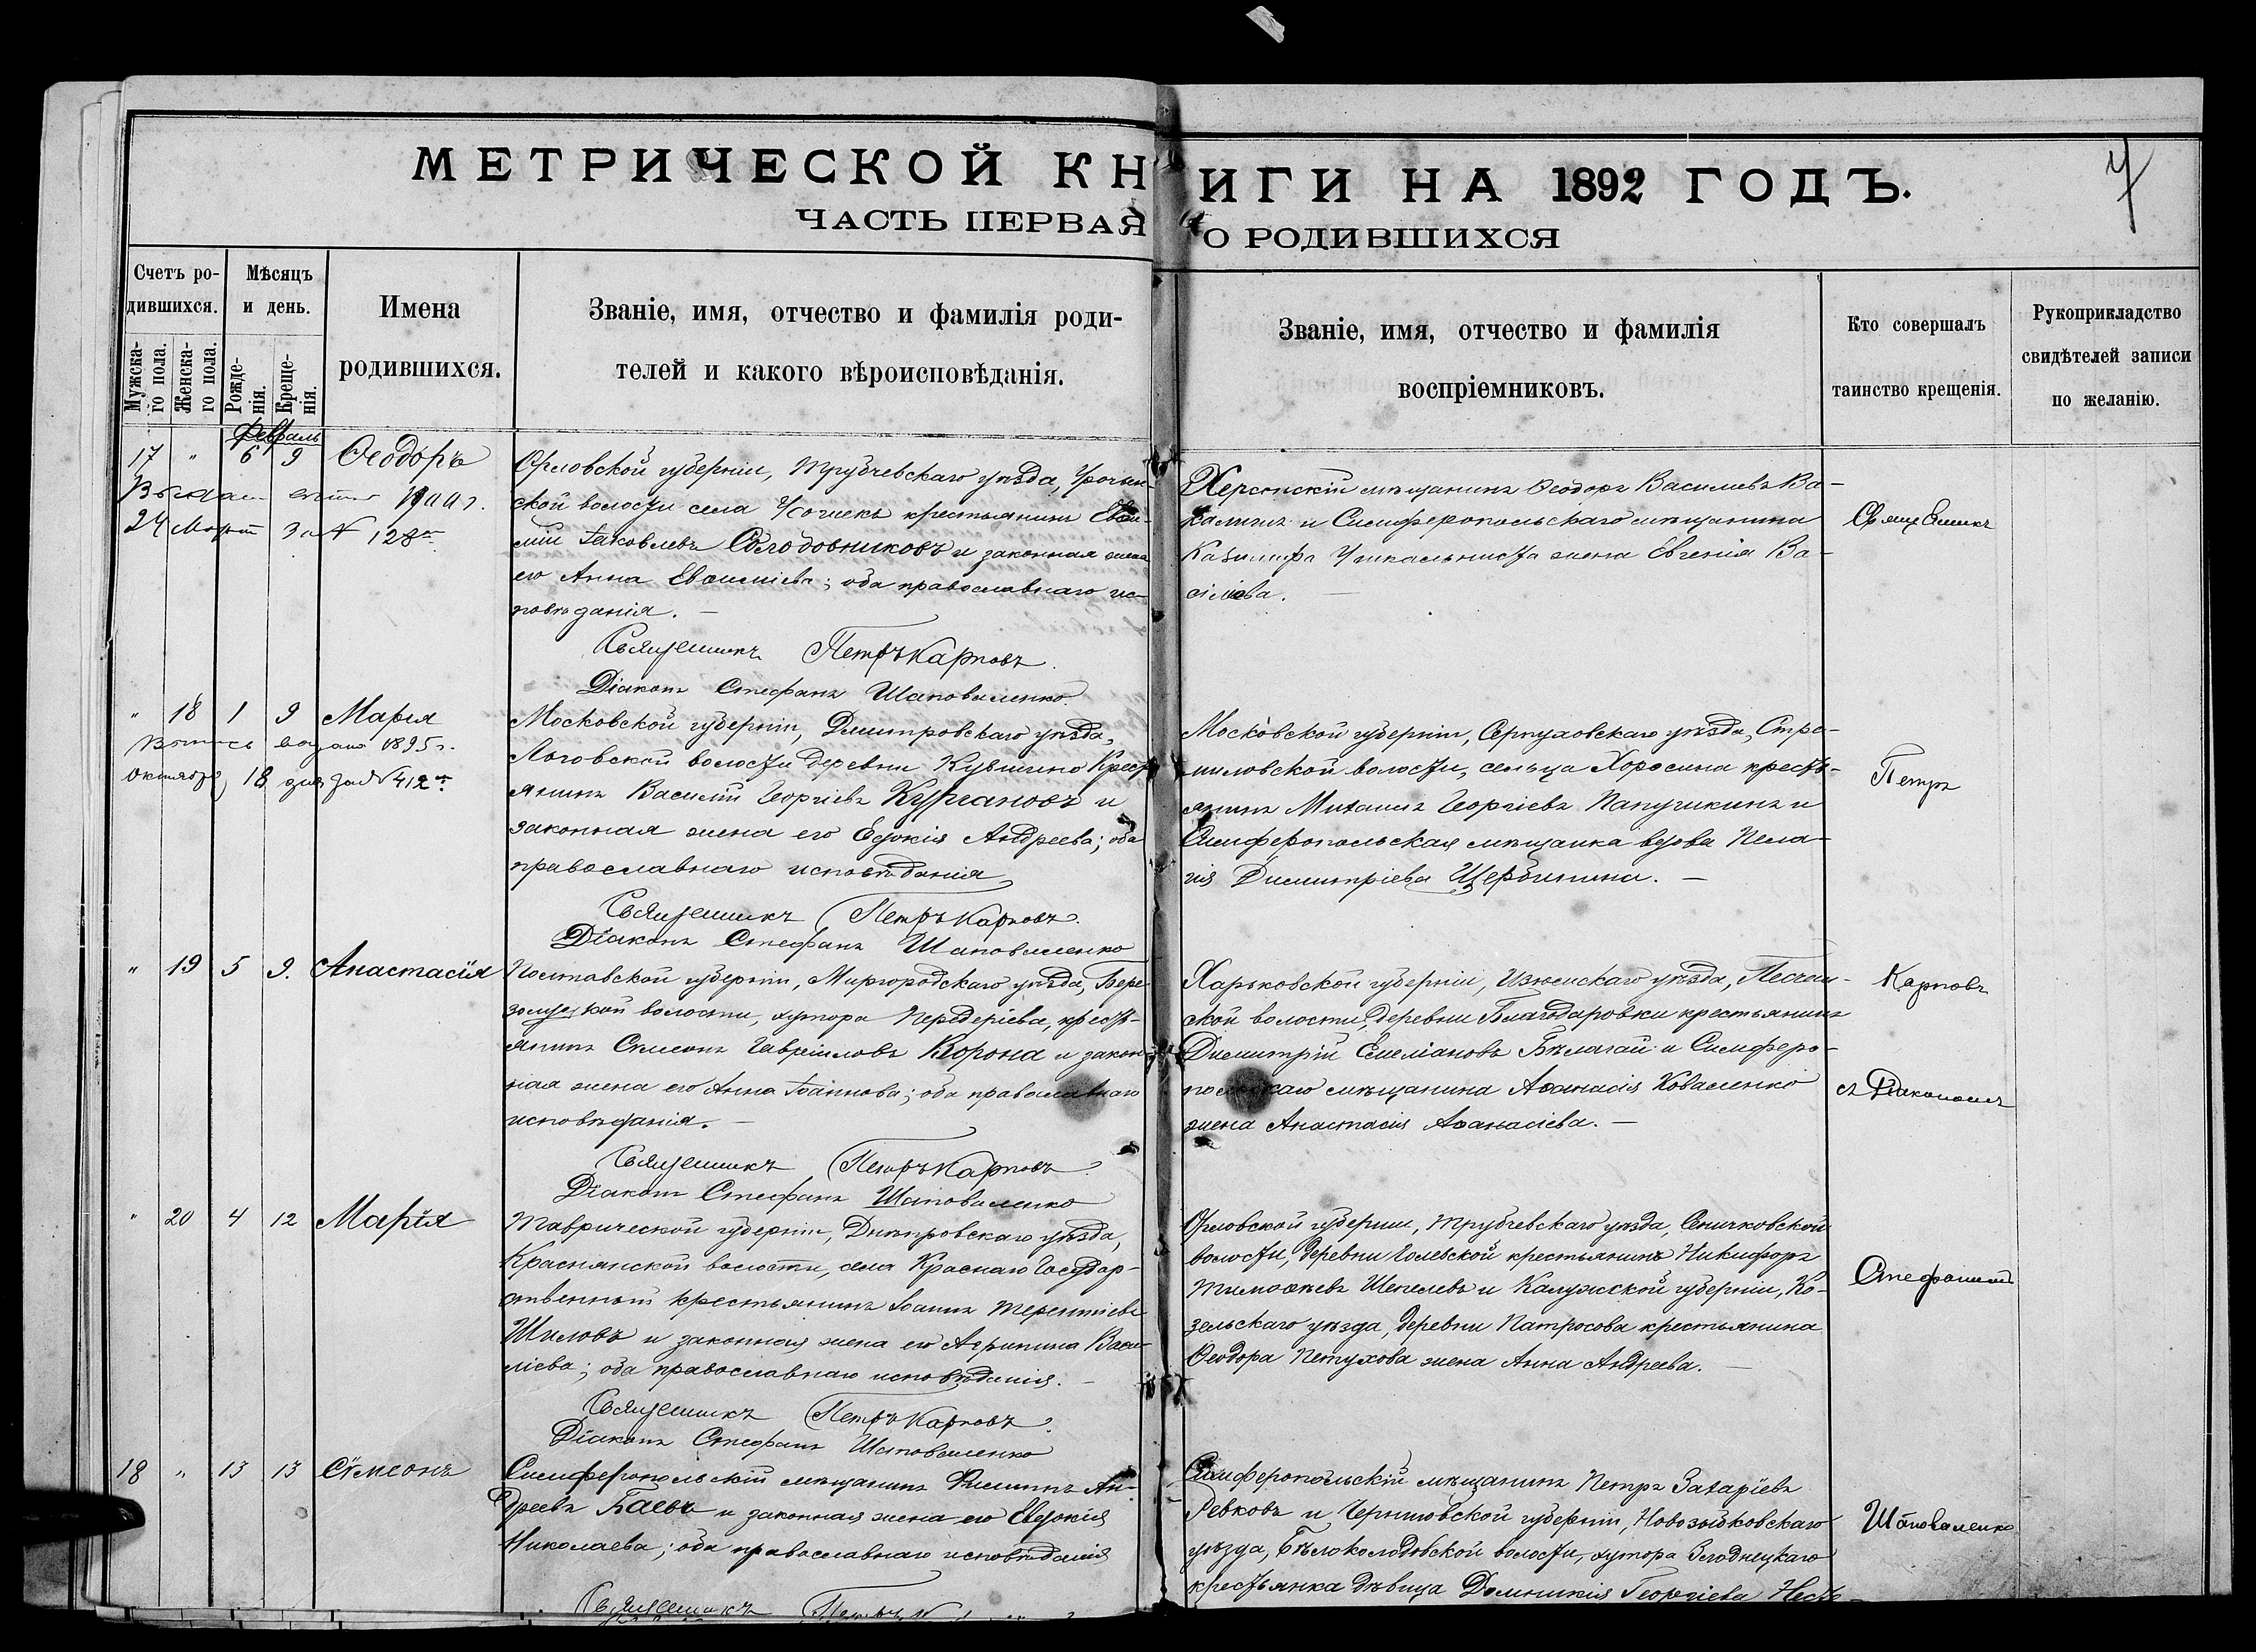 МЕТРИЧЕСКОЙ КНИГИ НА 1892 ГОДЪ.
ЧАСТЬ ПЕРВАЯ О РОДИВШИХСЯ
Счетъ ро-
дившихся.
Мужска-
го пола.
Женска-
го пола.
Мѣсяцъ
и день.
Рожде-
нія.
Креще-
нія.
Имена
родившихся.
Званіе, имя, отчество и фамилія роди-
телей и какого вѣроисповѣданія.
Званіе, имя, отчество и фамилія
воспріемниковъ.
Кто совершалъ
таинство крещенія.
Рукоприкладство
свидѣтелей записи
по желанію.
Февраль
17 " 6 9 Ѳеодоръ
24 Март за № 128
Орловской губерніи, Трубчевскаго уѣзда,
ской волости села крестьянинъ Евѳи-
мій Іаковлевъ Солодовниковъ и законная жена
его Анна Евѳиміева; оба православнаго ис-
повѣданія. —
Священникъ Петръ Карповъ.
Діаконъ Стефанъ Шаповаленко.
Херсонскій мѣщанинъ Ѳеодоръ Васильевъ Ва-
и Симферопольскаго мѣщанина
Казиміра жена Евгенія Ва-
силіева. —
Священникъ
" 18 1 9 Марія
выдана 1895 г.
Октября 18 дня за № 412
Московской губерніи, Дмитровскаго уѣзда,
волости деревни Кувшино Крест-
янинъ Василій Георгіевъ Кургановъ и
законная жена его Евдокія Андреева; оба
православнаго исповѣданія
Священникъ Петръ Карповъ.
Діаконъ Стефанъ Шаповаленко
Московской губерніи, Серпуховскаго уѣзда, Стре-
миловской волости, сельца Хоросина кресть-
янинъ Михаилъ Георгіевъ Папушкинъ и
Симферопольская мѣщанка вдова Пела-
гія Димитріева Щербинина. —
Петръ
" 19 5 9. Анастасія
Полтавской губерніи, Миргородскаго уѣзда, Бере-
золуцкой волости, хутора Передеріева, кресть-
янинъ Симеонъ Гавріиловъ Ворона и закон-
ная жена его Анна Іоаннова; оба православнаго
исповѣданія. —
Священникъ Петръ Карповъ
Діаконъ Стефанъ Шаповаленко
Харьковской губерніи, Изюмскаго уѣзда,
ской волости, деревни Благодаровки крестьянинъ
Димитрій Емеліановъ Бѣлагай и Симферо-
польскаго мѣщанина Аѳанасія Коваленко
жена Анастасія Аѳанасіева. —
Карповъ
съ Діакономъ
" 20 4 12 Марія
Таврической губерніи, Днѣпровскаго уѣзда,
Краснянской волости, села Краснаго Государ-
ственный крестьянинъ Іоаннъ Терентіевъ
Шиловъ и законная жена его Агрипина Васи-
ліева; оба православнаго исповѣданія. —
Священникъ Петръ Карповъ.
Діаконъ Стефанъ Шаповаленко
Орловской губерніи, Трубчевскаго уѣзда, Сничковской
волости, деревни Голевской крестьянинъ Никифоръ
Тимоѳеевъ Шепелевъ и Калужской губерніи, Ко-
зельскаго уѣзда, деревни Патросова крестьянина
Ѳеодора Пѣтухова жена Анна Андреева. —
Стефаномъ
18 " 13 13 Сѵмеонъ
Симферопольскій мѣщанинъ Филиппъ Ан-
дреевъ Баевъ и законная жена его Евдокія
Николаева; оба православнаго исповѣданія
Священникъ Петръ
Симферопольскій мѣщанинъ Петръ Захаріевъ
Ревковъ и Черниговской губерніи, Новозыбковскаго
уѣзда, Бѣлоколодовской волости, хутора
крестьянка дѣвица Домникія Георгіева
Шаповаленко